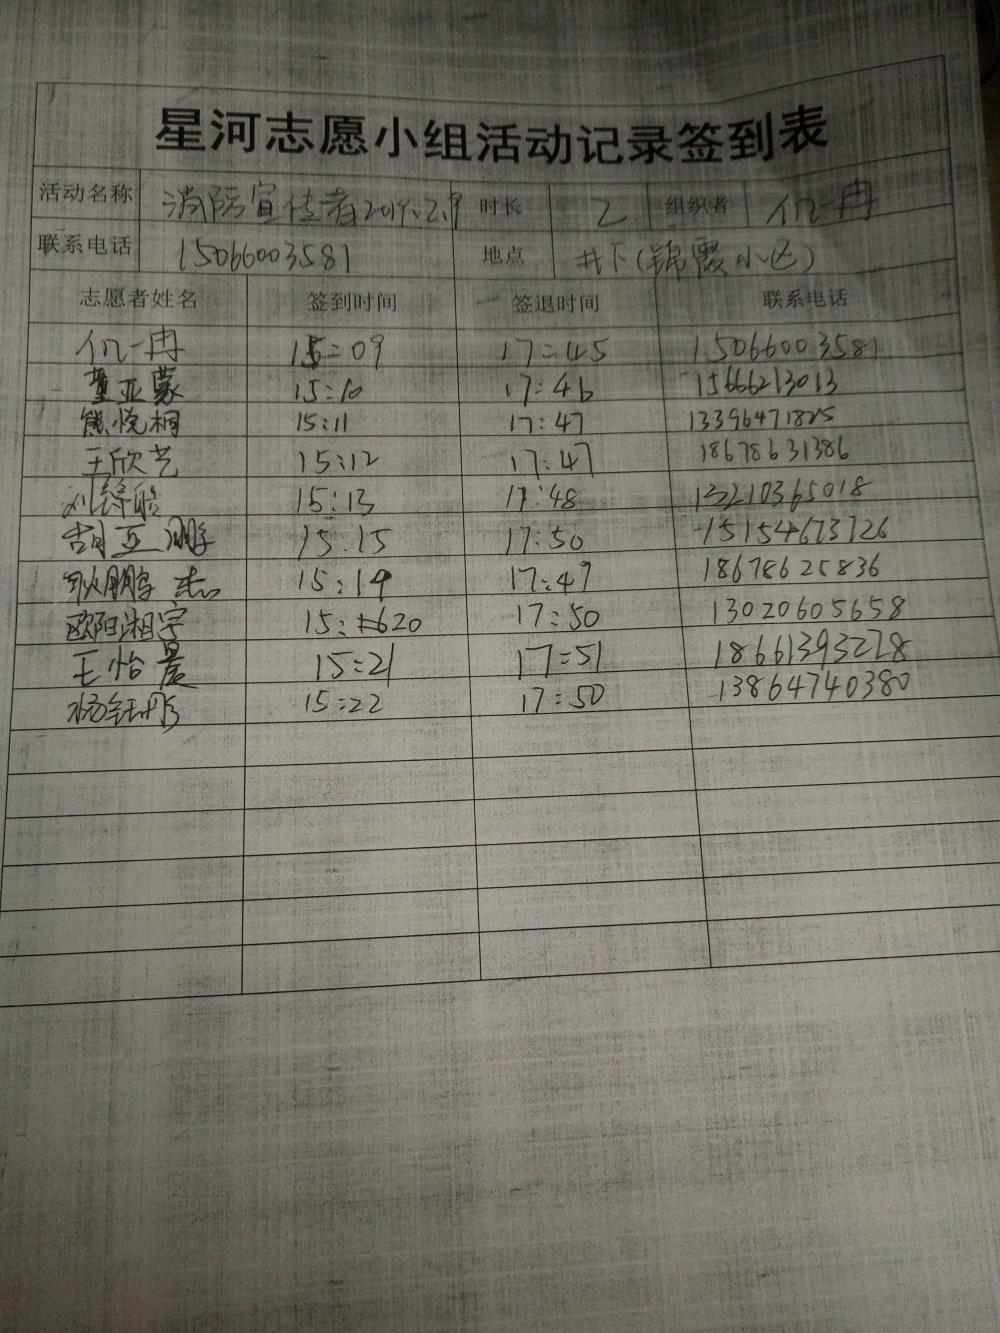 星河志愿小组活动记录签到表
活动名称 消防宣传者2019.2.9 时长 2 组织者 仉一冉
联系电话 15066003581 地点 井下(锦霞小区)
志愿者姓名 签到时间 签退时间 联系电话
仉一冉 15:09 17:45 15066003581
董亚蒙 15:10 17:46 15666213013
熊悦桐 15:11 17:47 13396471825
王欣艺 15:12 17:47 18678631386
15:13 17:48 13210365018
胡亚鹏 15:15 17:50 15154673726
耿鹏 15:19 17:47 18678625836
欧阳湘宇 15:20 17:50 13020605658
王怡晨 15:21 17:51 18661393278
15:22 17:50 13864740380